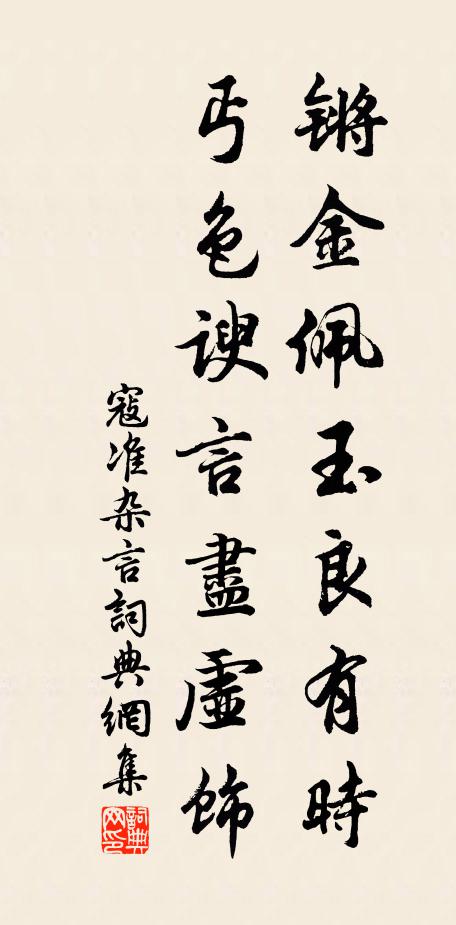 锵金佩玉良有時
丐色謏言盡虛飾
寇准杂言詞典網集
詞典网印